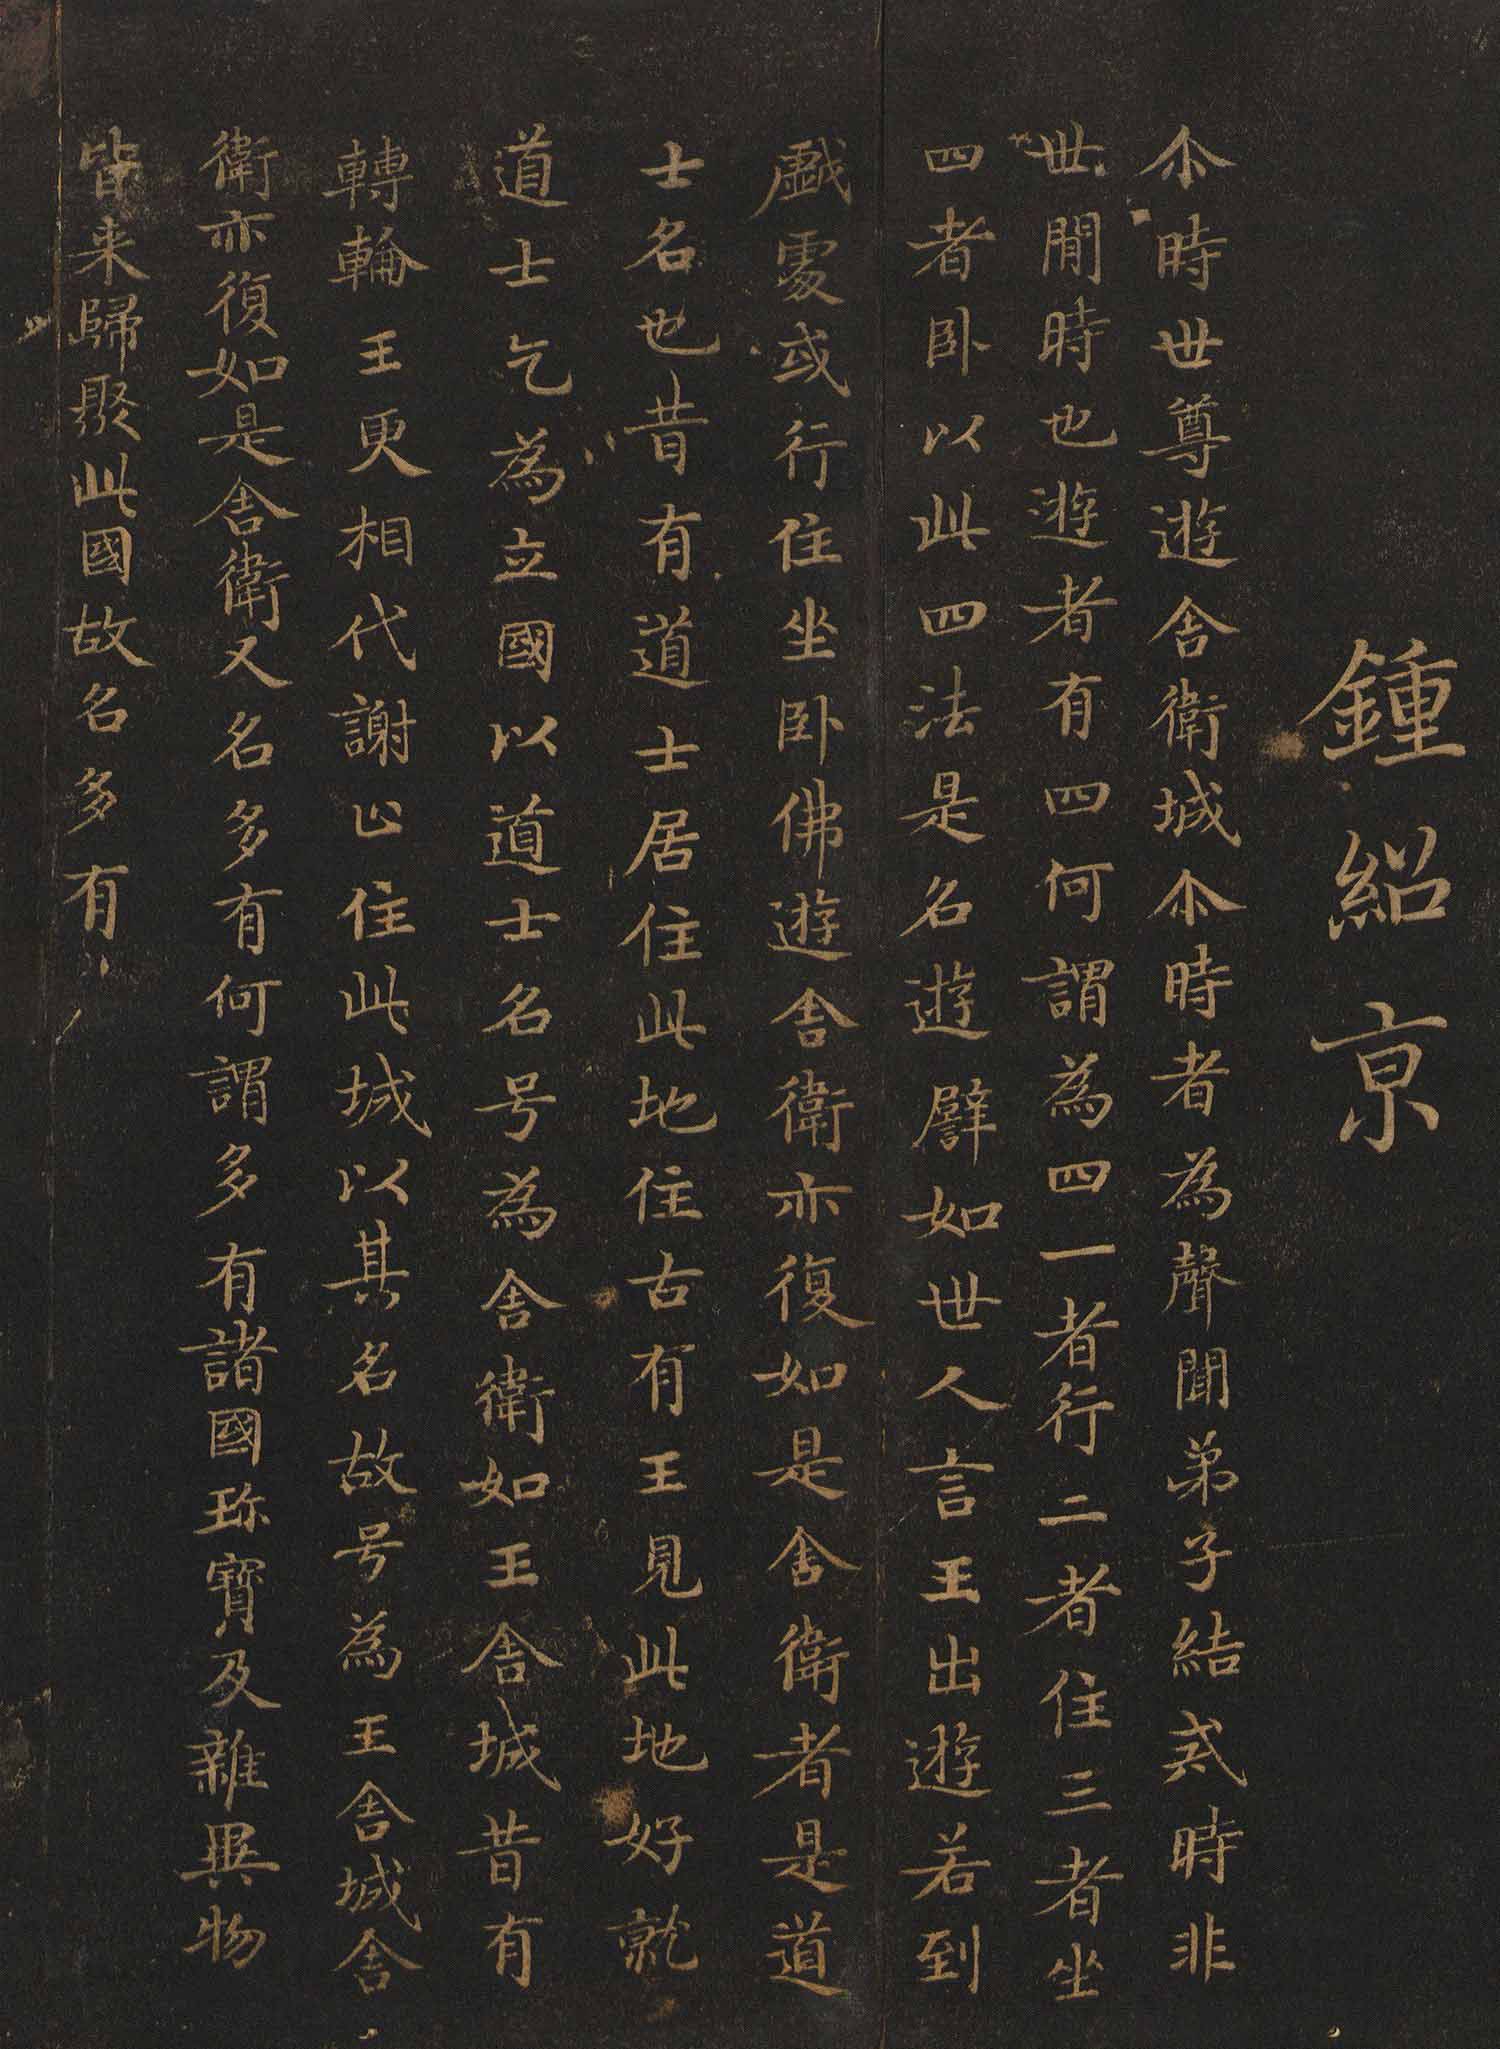 鍾紹京
尒時世尊遊舎衛城尒時者為聲聞弟子結戒時非
世閒時也遊者有四何謂為四一者行二者住三者坐
四者卧以此四法是名遊譬如世人言王出遊若到
戯處或行住坐卧佛遊舎衛亦復如是舎衛者是道
士名也昔有道士居住此地住古有王見此地好就
道士乞為立國以道士名号為舎衛如王舎城昔有
轉輪王更相代謝止住此城以其名故号為王舎城舎
衛亦復如是舎衛又名多有何謂多有諸國珎寶及雜異物
皆来歸聚此國故名多有